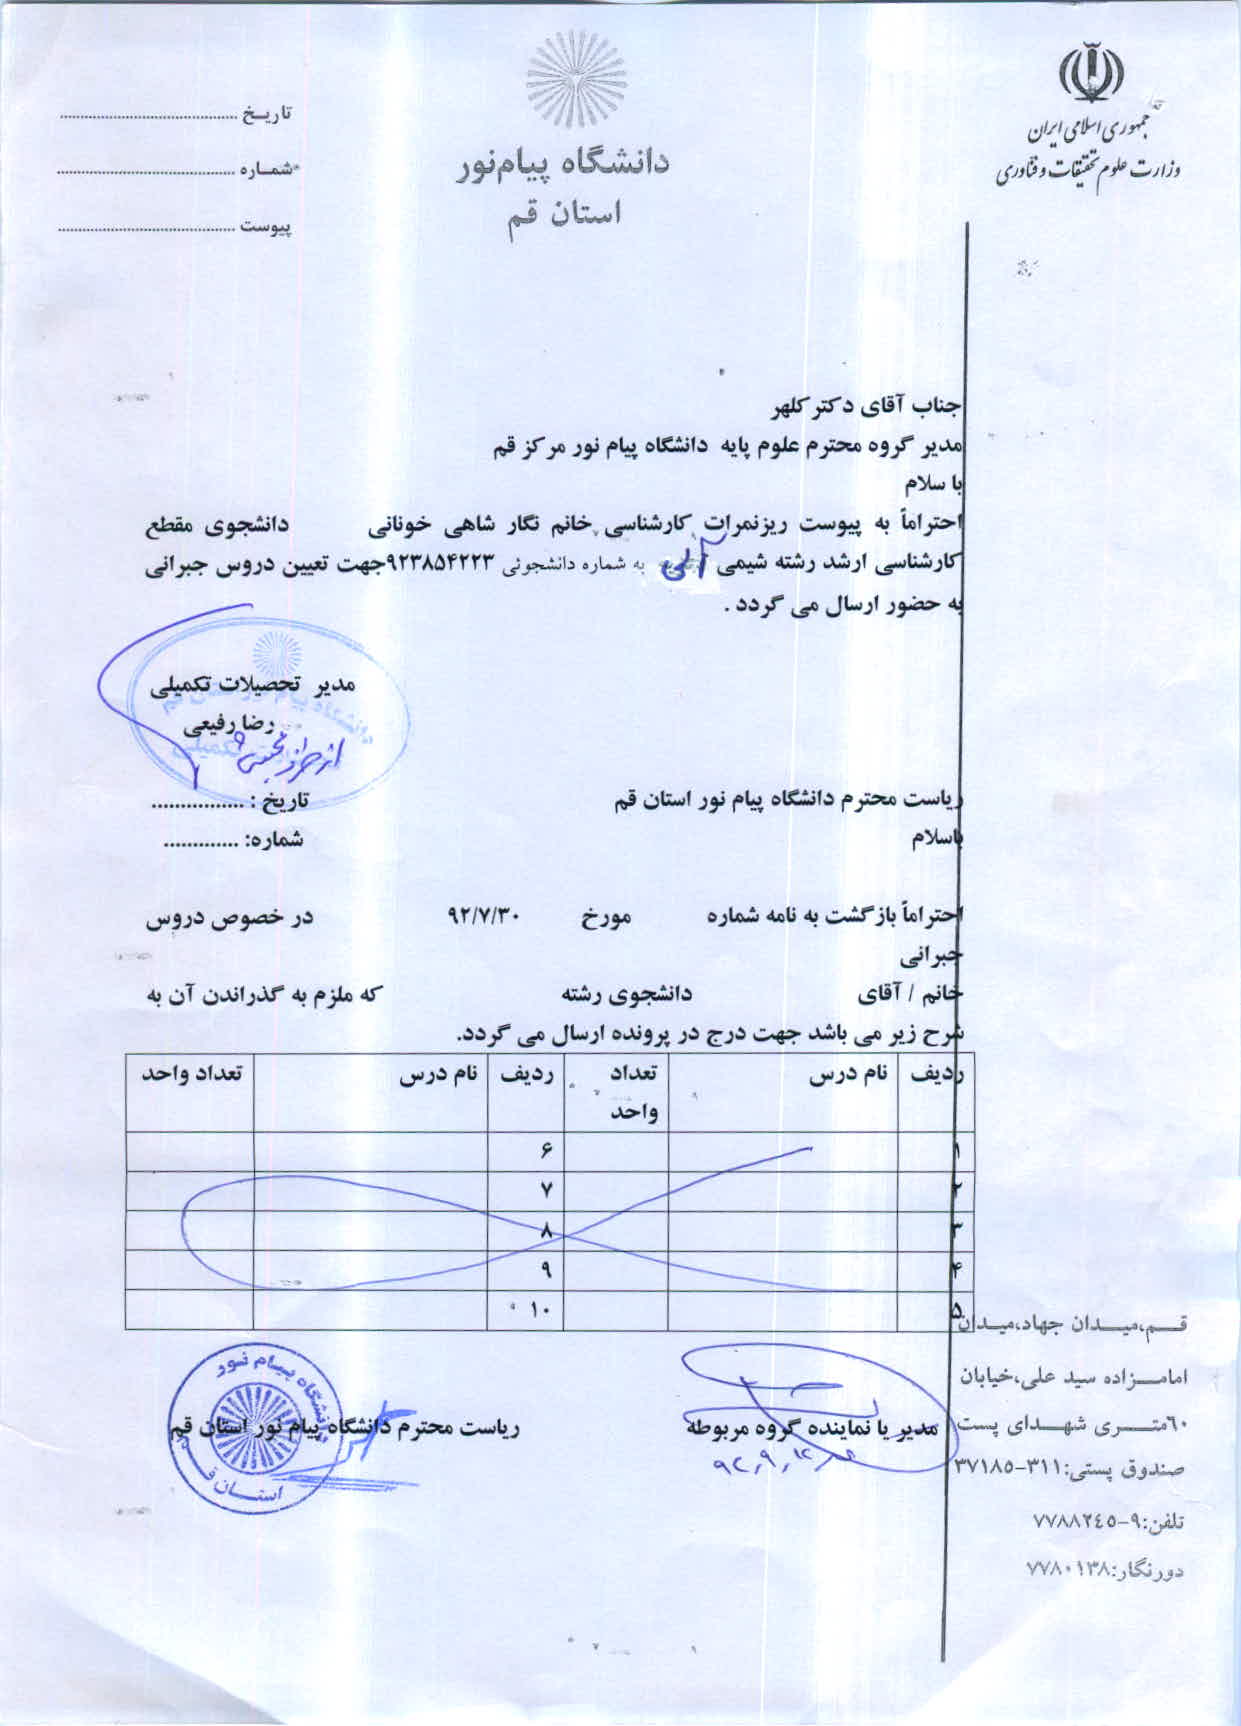 جمهوری اسلامی ایران
وزارت علوم تحقیقات و فناوری
دانشگاه پیام‌نور
استان قم
تاریـخ ......................................
شمـاره ......................................
پیوست ......................................
جناب آقای دکتر کلهر
مدیر گروه محترم علوم پایه دانشگاه پیام نور مرکز قم
با سلام
احتراماً به پیوست ریزنمرات کارشناسی خانم نگار شاهی خونانی دانشجوی مقطع
کارشناسی ارشد رشته شیمی آلی به شماره دانشجوئی ۹۲۳۸۵۴۲۲۳جهت تعیین دروس جبرانی
به حضور ارسال می گردد .
مدیر تحصیلات تکمیلی
رضا رفیعی
ریاست محترم دانشگاه پیام نور استان قم
تاریخ : ................
باسلام
شماره: .............
احتراماً بازگشت به نامه شماره مورخ ۹۲/۷/۳۰ در خصوص دروس
جبرانی
خانم / آقای دانشجوی رشته که ملزم به گذراندن آن به
شرح زیر می باشد جهت درج در پرونده ارسال می گردد.
ردیف نام درس تعداد واحد ردیف نام درس تعداد واحد
۱ ۶
۲ ۷
۳ ۸
۴ ۹
۵ ۱۰
مدیر یا نماینده گروه مربوطه
۹۲,۹,۱۲
ریاست محترم دانشگاه پیام نور استان قم
دانشگاه پیـام نـور
استــان قــم
قـــم،میـــدان جهاد،میـدان
امامـــزاده سید علی،خیابان
۶۰متـــری شهـــدای پست
صندوق پستی:۳۱۱-۳۷۱۸۵
تلفن:۹-۷۷۸۸۲۴۵
دورنگار:۷۷۸۰۱۳۸